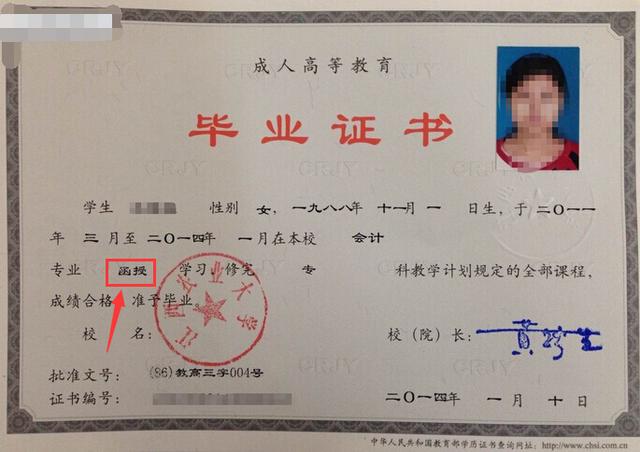 成人高等教育
毕业证书
学生 性别 女，一九八八年 十一月 一 日生，于 二〇一一
年 三 月至 二〇一四年 一月在本校 会计
专业 函授 学习，修完 专 科教学计划规定的全部课程，
成绩合格，准予毕业。
校 名： 江西农业大学 校（院）长： 黄路生
批准文号： (86)教高三字004号
证书编号： 二〇一四年 一 月 十 日
中华人民共和国教育部学历证书查询网址：http://www.chsi.com.cn